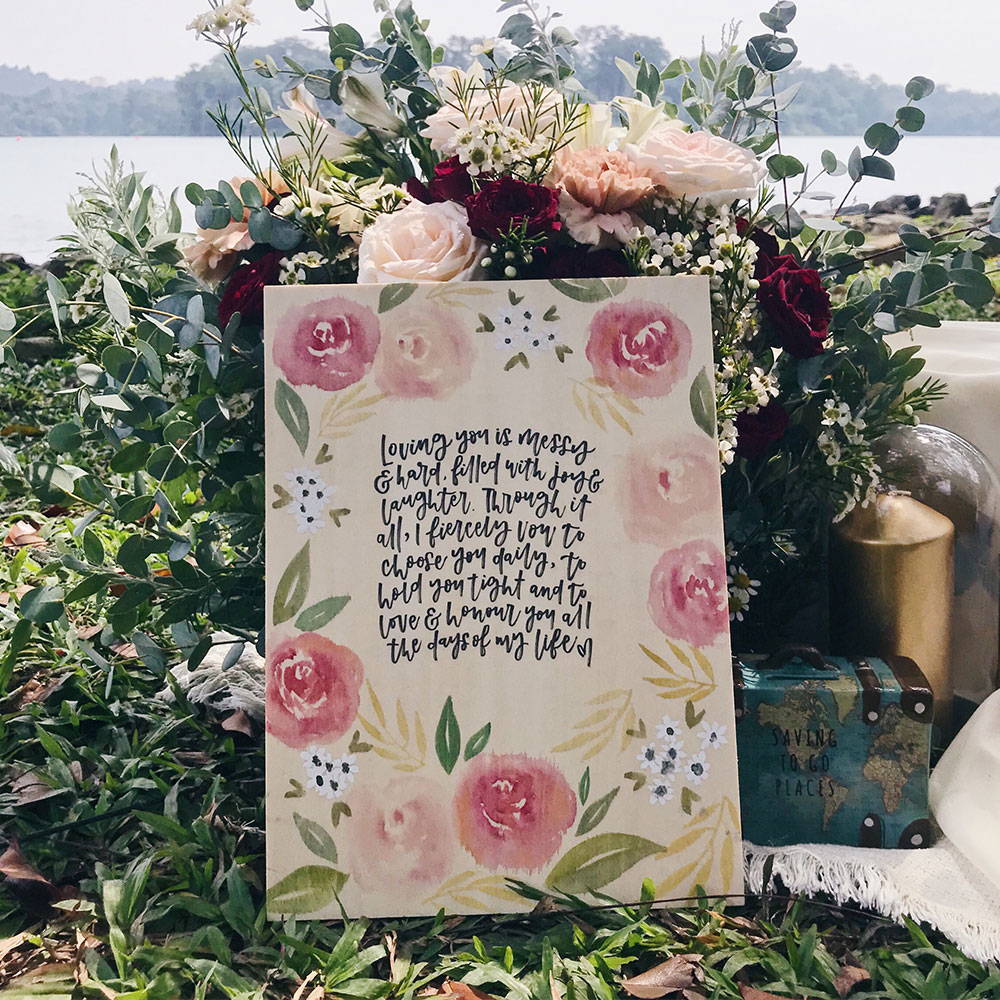 Loving you is messy
& hard, filled with joy &
laughter. Through it
all, I fiercely vow to
choose you daily, to
hold you tight and to
love & honour you all
the days of my life
SAVING
TO GO
PLACES